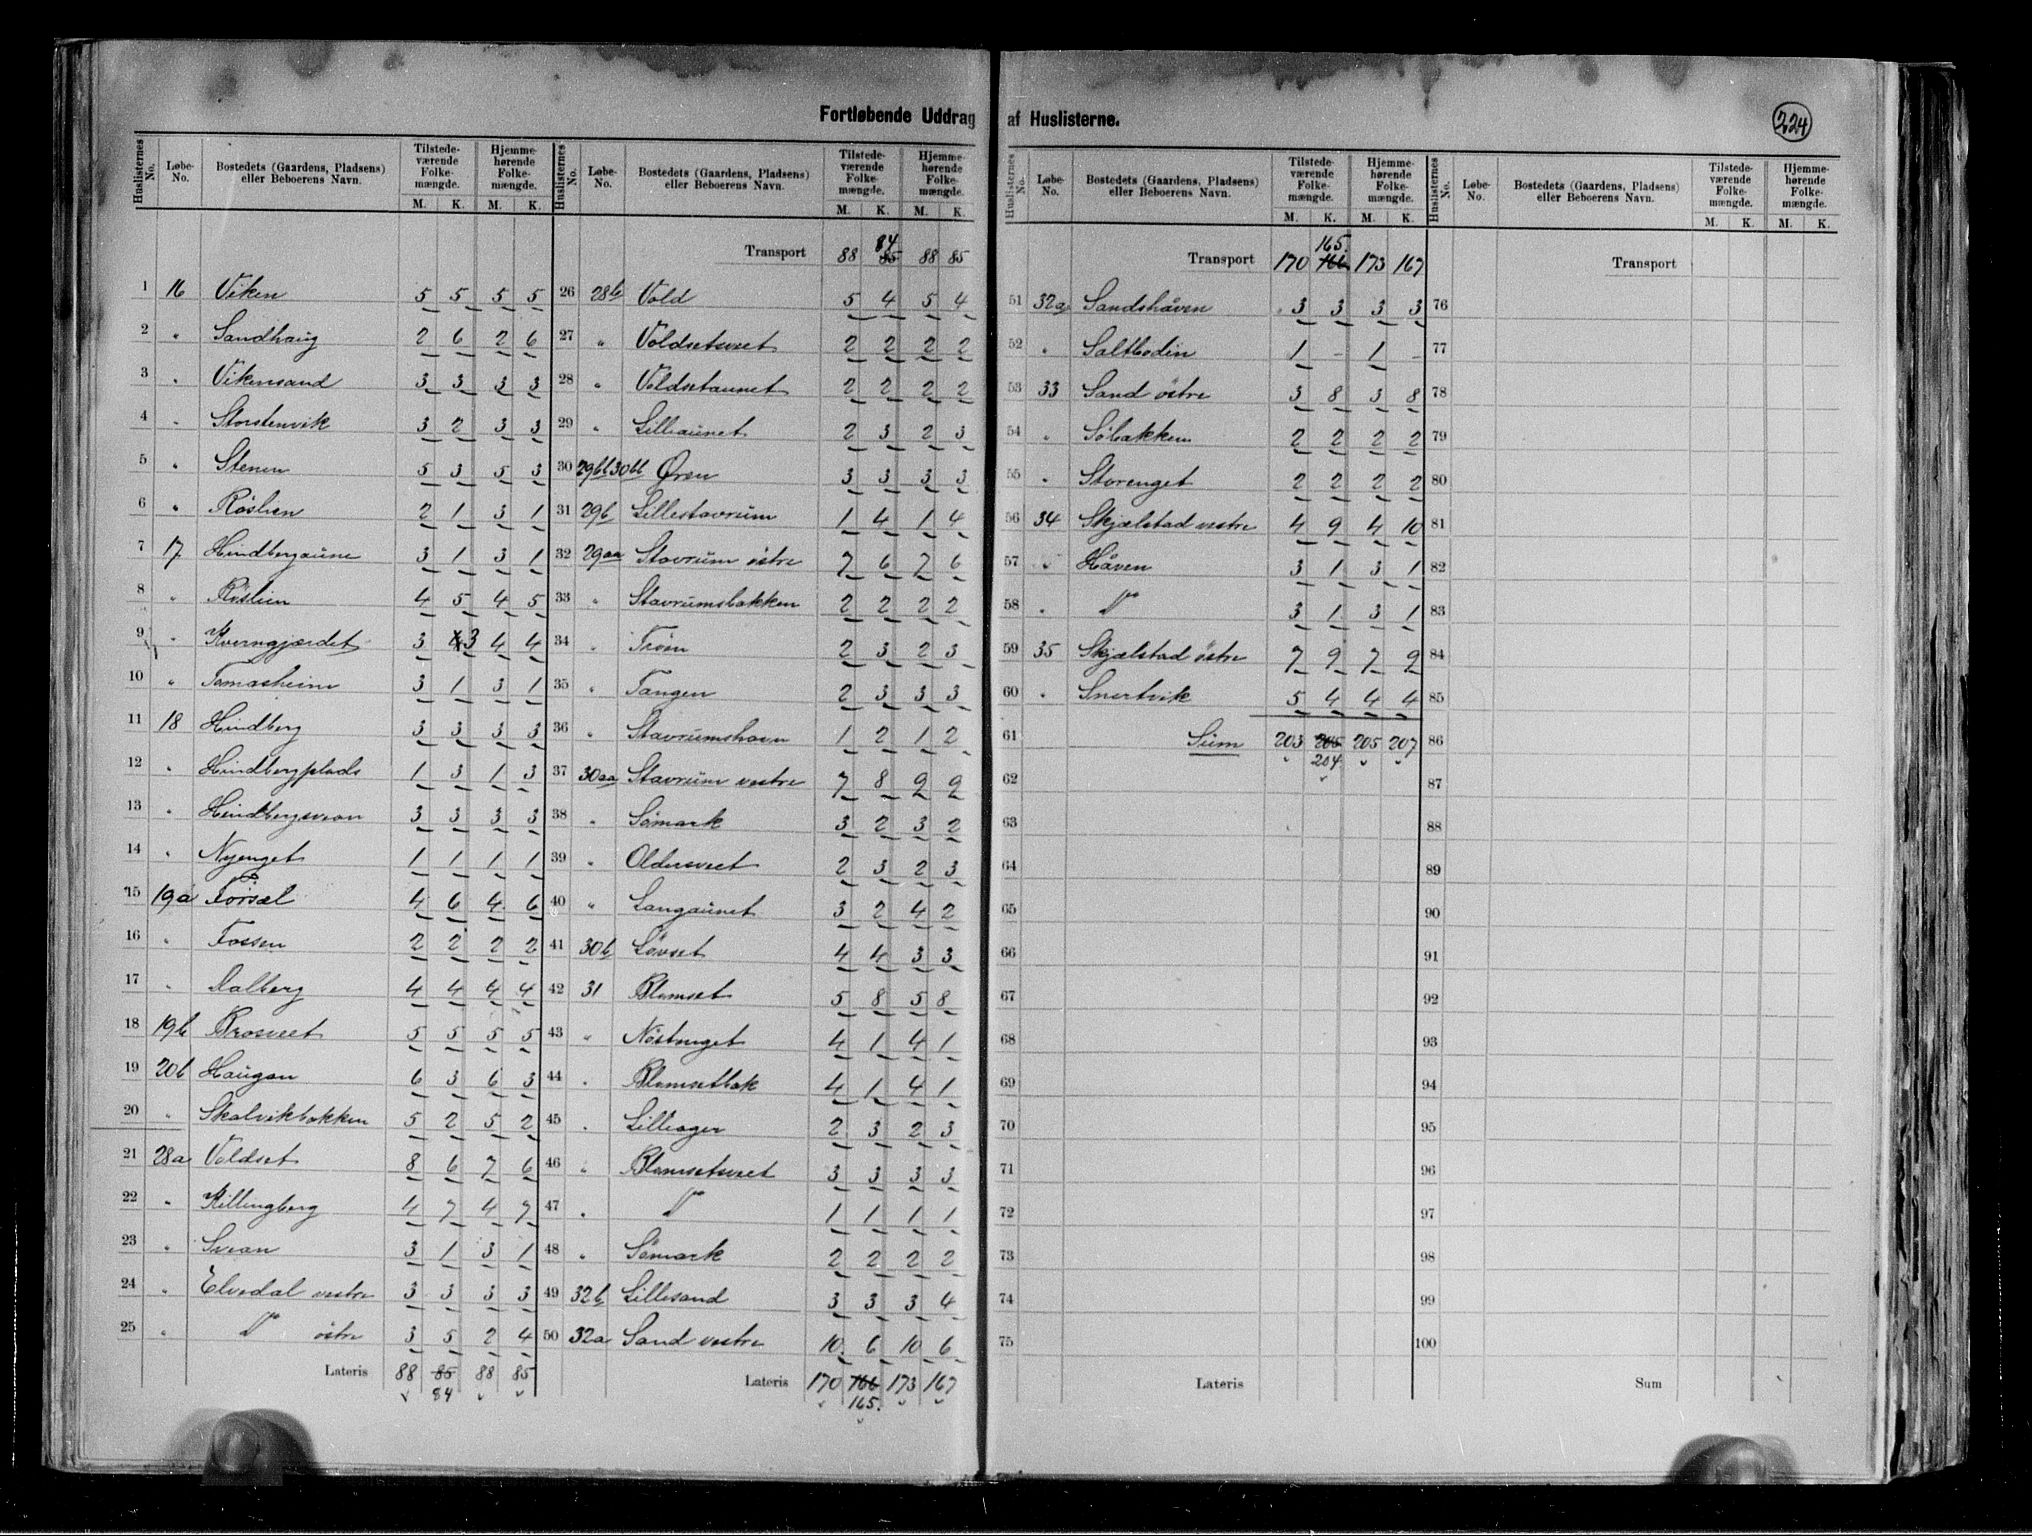 Fortløbende Uddrag af Huslisterne.
224
Huslisternes No. Løbe-No. Bostedets (Gaardens, Pladsens) eller Beboerens Navn. Tilstedeværende Folkemængde. M. K. Hjemmehørende Folkemængde. M. K.
1 16 Viken 5 5 5 5
2 " Sandhaug 2 6 2 6
3 " Vikensand 3 3 3 3
4 " Storstenvik 3 2 3 3
5 " Stenen 5 3 5 3
6 " Röslien 2 1 3 1
7 17 Hindbergaune 3 1 3 1
8 " Röslien 4 5 4 5
9 " Kverngjærdet 3 3 4 4
10 " Tomasheim 3 1 3 1
11 18 Hindberg 3 3 3 3
12 " Hindbergplads 1 3 1 3
13 " Hindbergsvean 3 3 3 3
14 " Nyenget 1 1 1 1
15 19a Forsæl 4 6 4 6
16 " Fossen 2 2 2 2
17 " Dalberg 4 4 4 4
18 19b Brosveet 5 5 5 5
19 20b Haugan 6 3 6 3
20 " Skalvikbakken 5 2 5 2
21 28a Voldset 8 6 7 6
22 " Killingberg 4 7 4 7
23 " Svean 3 1 3 1
24 " Elvedal vestre 3 3 3 3
25 " Do östre 3 5 2 4
Lateris 88 85 88 85
84
Huslisternes No. Løbe-No. Bostedets (Gaardens, Pladsens) eller Beboerens Navn. Tilstedeværende Folkemængde. M. K. Hjemmehørende Folkemængde. M. K.
84
Transport 88 85 88 85
26 28b Vold 5 4 5 4
27 " Voldsetsveet 2 2 2 2
28 " Voldsetaunet 2 2 2 2
29 " Lilleaunet 2 3 2 3
30 29bb 30bb Øren 3 3 3 3
31 29b Lillestavrum 1 4 1 4
32 29aa Stavrum östre 7 6 7 6
33 " Stavrumsbakken 2 2 2 2
34 " Trøen 2 3 2 3
35 " Tangen 2 3 3 3
36 " Stavrumshavn 1 2 1 2
37 30aa Stavrum vestre 7 8 9 9
38 " Sömark 3 2 3 2
39 " Oldersveet 2 3 2 3
40 " Langaunet 3 2 4 2
41 30b Lövset 4 4 3 3
42 31 Blomset 5 8 5 8
43 " Nöstenget 4 1 4 1
44 " Blomsetbak 4 1 4 1
45 " Lilleager 2 3 2 3
46 " Blomsetsveet 3 3 3 3
47 " Do 1 1 1 1
48 " Sömark 2 2 2 2
49 32b Lillesand 3 3 3 4
50 32a Sand vestre 10 6 10 6
Lateris 170 166 173 167
165.
Huslisternes No. Løbe-No. Bostedets (Gaardens, Pladsens) eller Beboerens Navn. Tilstedeværende Folkemængde. M. K. Hjemmehørende Folkemængde. M. K.
165.
Transport 170 166 173 167
51 32a Sandshåven 3 3 3 3
52 " Saltbodin 1 - 1 -
53 33 Sand östre 3 8 3 8
54 " Söbakken 2 2 2 2
55 " Storenget 2 2 2 2
56 34 Skjælstad vestre 4 9 4 10
57 " Håven 3 1 3 1
58 " Do 3 1 3 1
59 35 Skjælstad östre 7 9 7 9
60 " Snertvik 5 4 4 4
61 Sum 203 205 205 207
204.
62
63
64
65
66
67
68
69
70
71
72
73
74
75
Lateris
Huslisternes No. Løbe-No. Bostedets (Gaardens, Pladsens) eller Beboerens Navn. Tilstedeværende Folkemængde. M. K. Hjemmehørende Folkemængde. M. K.
Transport
76
77
78
79
80
81
82
83
84
85
86
87
88
89
90
91
92
93
94
95
96
97
98
99
100
Sum